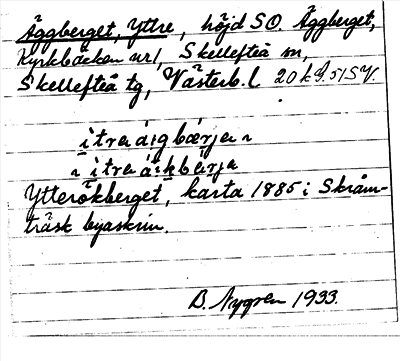 Äggberget, Yttre, höjd SO. Äggberget,
Kyrkbäcken nr 1, Skellefteå sn,
Skellefteå tg, Västerb. l. 20 k
ìtra á:gbærjən
ìtra á:kbærja
Ytterökberget, karta 1885 i Skråm-
träsk byaskrin.
B. Nygren 1933.